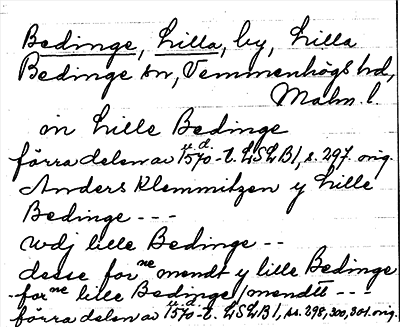 Bedinge, Lilla, by, Lilla
Bedinge sn, Vemmenhögs hd,
Malm. l.
in Lille Bedinge
förra delen av 1570-t. LSLB 1, s. 297. orig.
Anders Klemmitzen y Lille
Bedinge ---
wdj lille Bedinge --
desse forne mendt y lille Bedinge
-forne lille Bedinge/mendtt ---
förra delen av 1570-t. LSLB 1, ss. 298, 300, 301. orig.